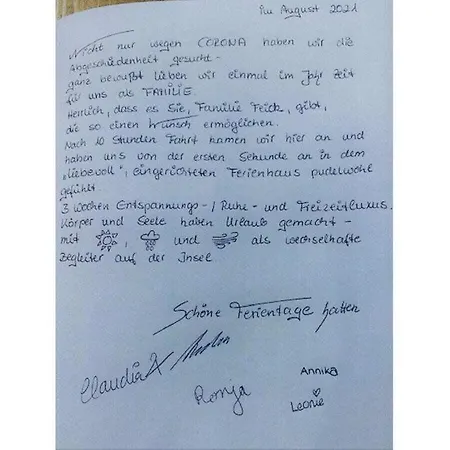 Im August 2021
Nicht nur wegen CORONA haben wir die
Abgeschiedenheit gesucht -
ganz bewußt lieben wir einmal im Jahr Zeit
für uns als FAMILIE.
Herrlich, dass es Sie, Familie Feick, gibt,
die so einen Wunsch ermöglichen.
Nach 10 Stunden Fahrt kamen wir hier an und
haben uns von der ersten Sekunde an in dem
"liebevoll", eingerichteten Ferienhaus pudelwohl
gefühlt.
3 Wochen Entspannungs-/Ruhe- und Freizeitluxus.
Körper und Seele haben Urlaub gemacht -
mit , und als wechselhafte
Begleiter auf der Insel.
Schöne Ferientage hatten
Claudia &
Annika
Romja
Leonie